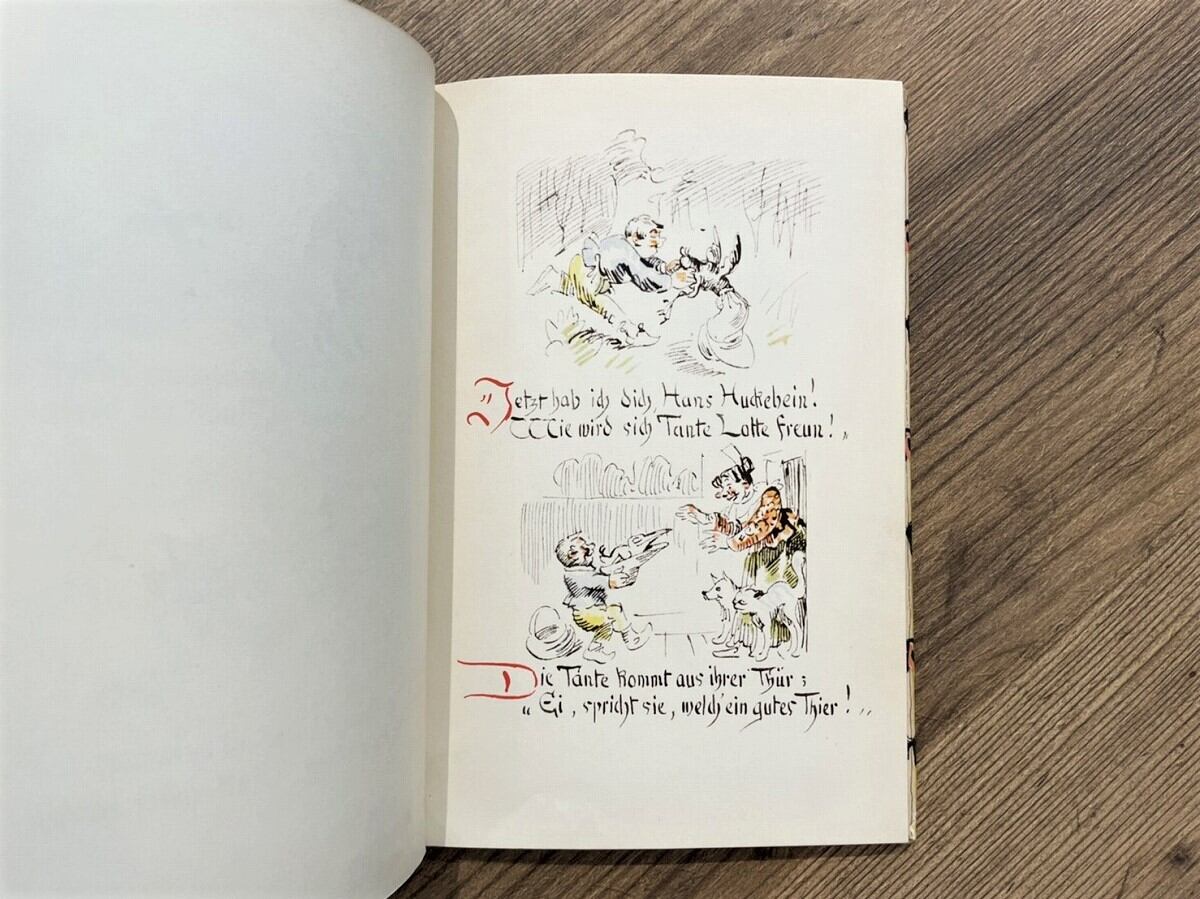 „Jetzt hab ich dich, Hans Huckebein!
Wie wird sich Tante Lotte freun!"
Die Tante kommt aus ihrer Thür;
„Ei, spricht sie, welch' ein gutes Thier!"